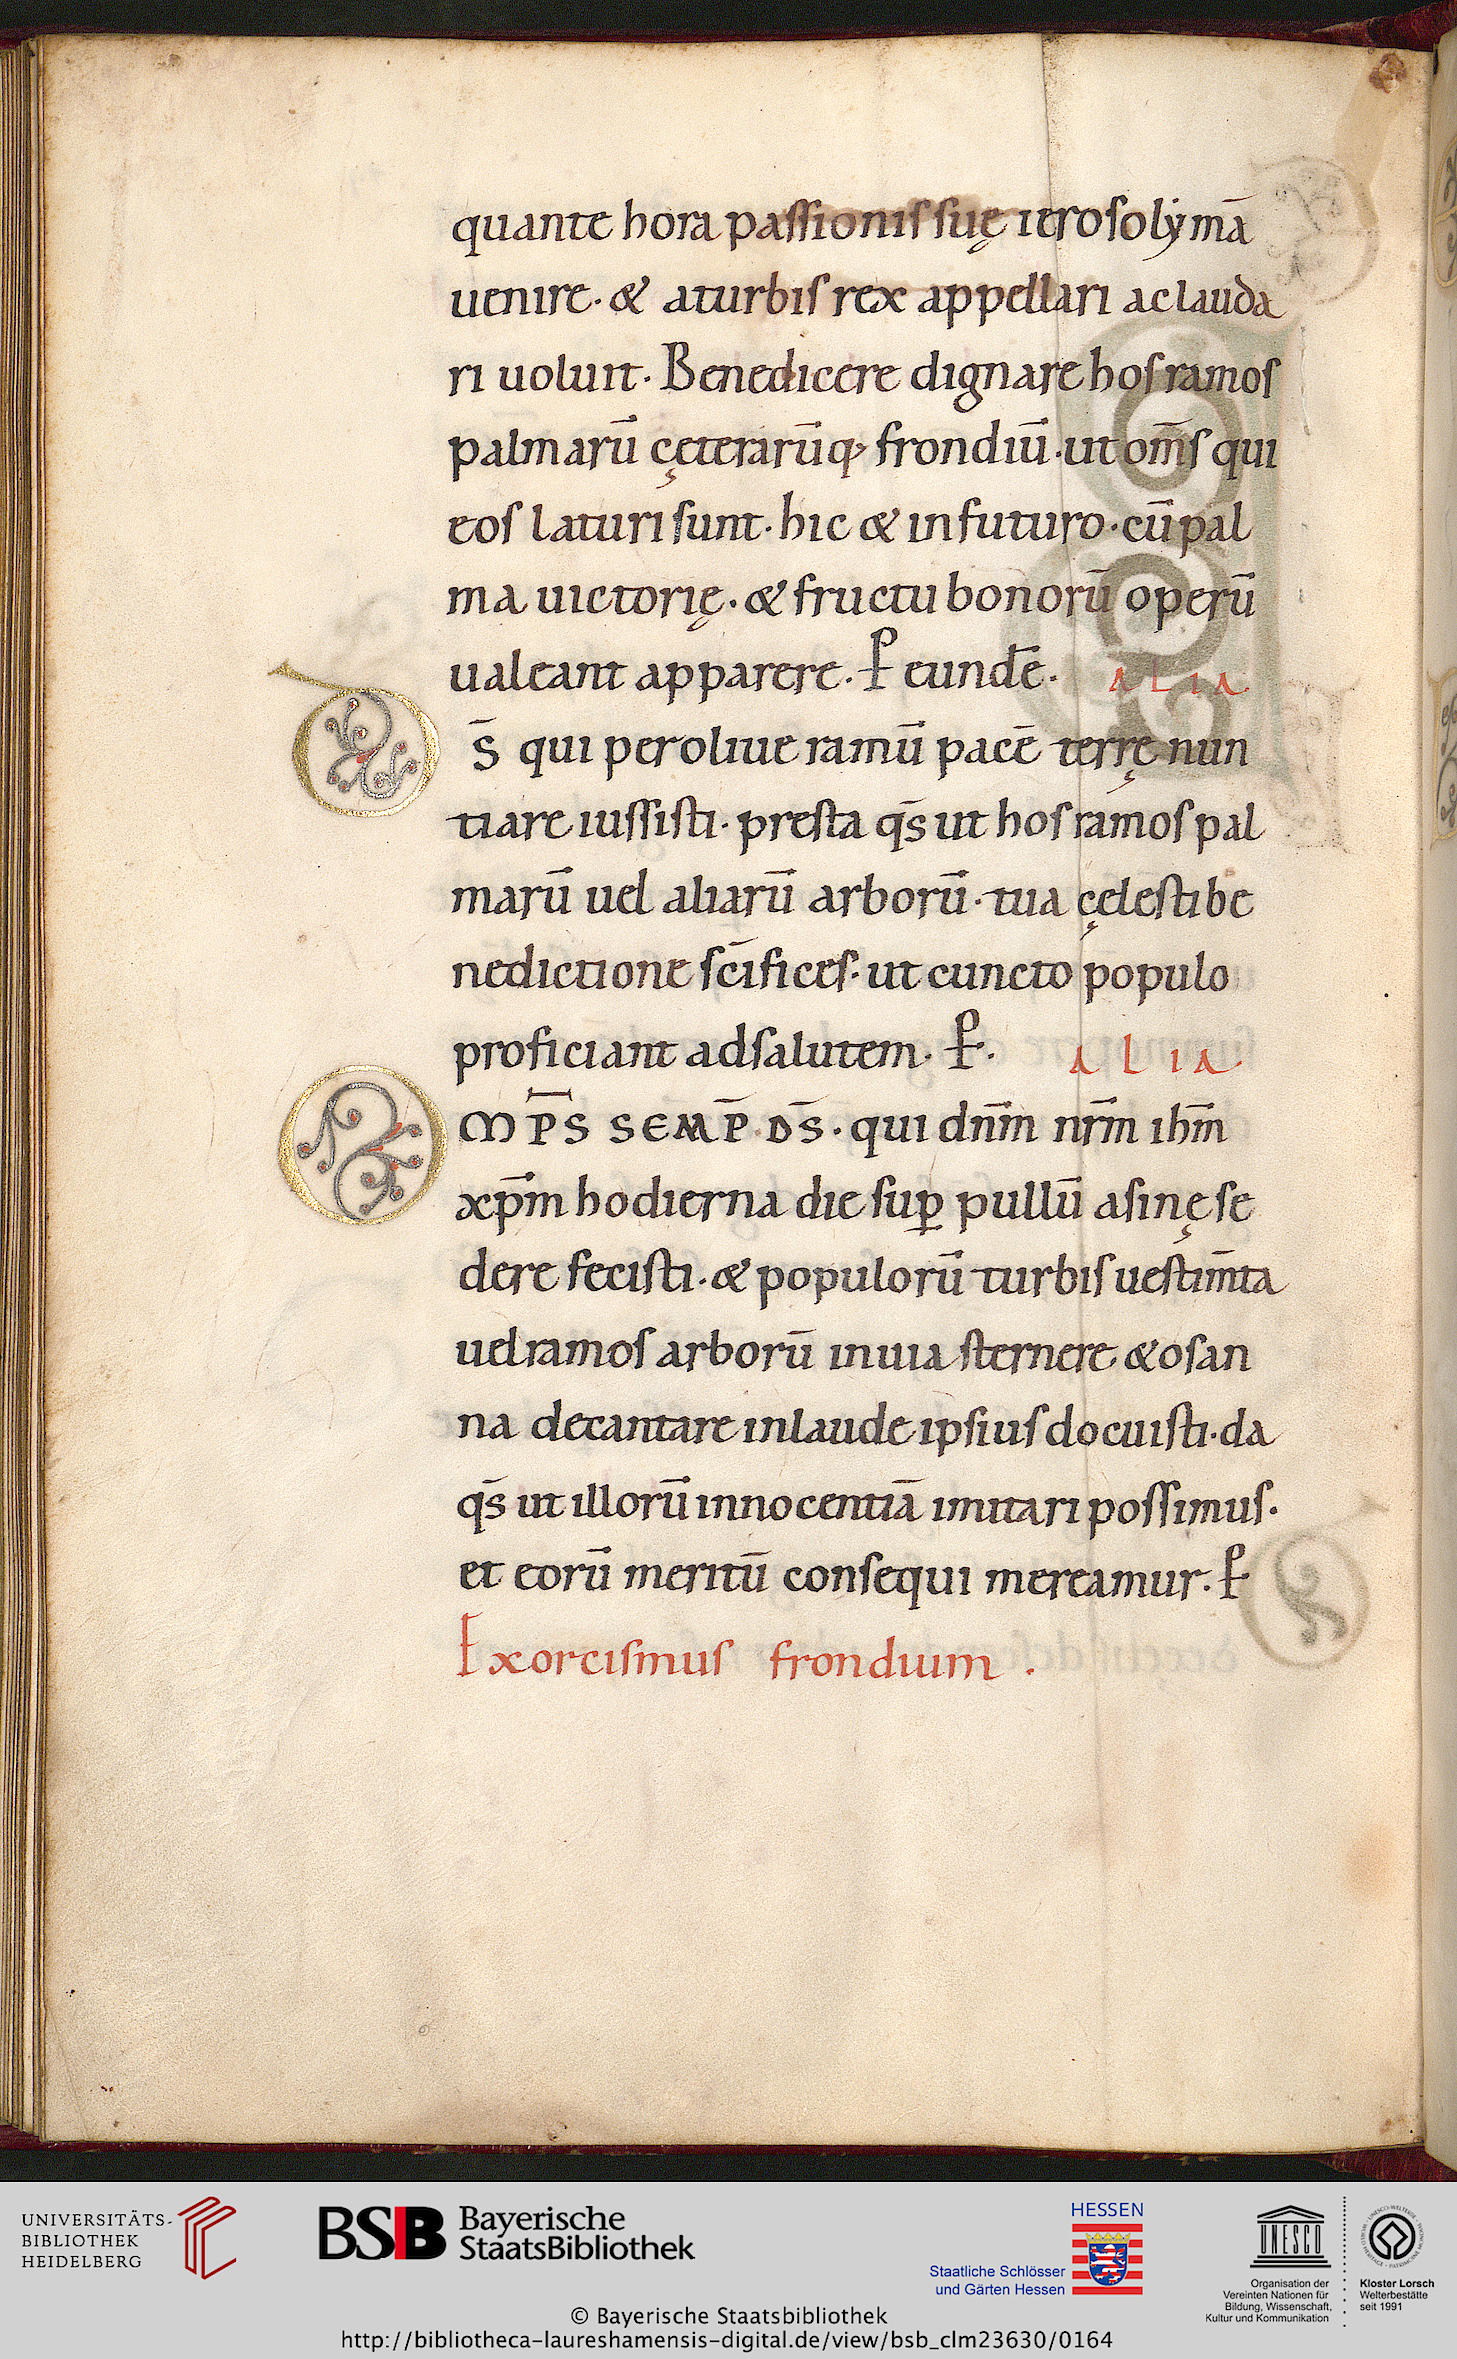 quante hora passionis suę ierosolẏmā
uenire · & a turbis rex appellari ac lauda
ri uoluit · Benedicere dignare hos ramos
palmarū cęterarūq; frondiū · ut om̄s qui
eos laturi sunt · hic & in futuro · cū pal
ma uictorię · & fructu bonorū operū
ualeant apparere · P eund̄e · ALIA
Ds̄ qui per oliue ramū pacē terrę nun
tiare iussisti · presta qs̄ ut hos ramos pal
marū uel aliarū arborū · tua cęlesti be
nedictione sc̄ifices · ut cuncto populo
proficiant ad salutem · P · ALIA
OMP̄S SEMP̄ · DS̄ · qui dn̄m nr̄m ih̄m
xp̄m hodierna die sup̱ pullū asinę se
dere fecisti · & populorū turbis uestim̄ta
uel ramos arborū in uia sternere & osan
na decantare in laude ipsius docuisti · da
qs̄ ut illorū innocentiā imitari possimus ·
et eorū meritū consequi mereamur · P
Exorcismus frondium ·
UNIVERSITÄTS-
BIBLIOTHEK
HEIDELBERG
BSB Bayerische
StaatsBibliothek
HESSEN
Staatliche Schlösser
und Gärten Hessen
UNESCO
Organisation der
Vereinten Nationen für
Bildung, Wissenschaft,
Kultur und Kommunikation
Kloster Lorsch
Welterbestätte
seit 1991
© Bayerische Staatsbibliothek
http://bibliotheca-laureshamensis-digital.de/view/bsb_clm23630/0164